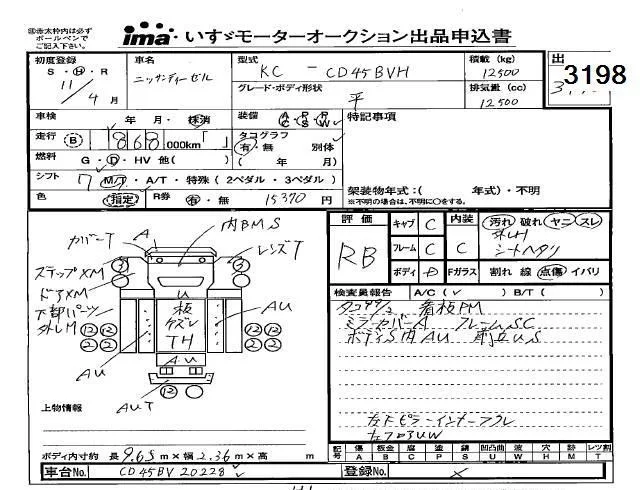 ㊟赤太枠内は必ず
ボールペンで
ご記入下さい。
ima いすゞモーターオークション出品申込書
初度登録 車名 型式 積載 (kg) 出
S・H・R ニッサンディーゼル KC - CD45BVH 12500 3198
11年 4月 グレード・ボディ形状 平 排気量 (cc) 12500
車検 年 月・抹消 装備 A/C P/S P/W 特記事項
走行 B 868,000km「 」 タコグラフ 有・無 別体
燃料 G・D・HV 他( ) ( 年 月)
シフト 7 M/T・A/T・特殊(2ペダル・3ペダル) 架装物年式:( 年式)・不明
色 (指定) R券 有・無 15370円 ※不明の場合は、不明に○をする。
評価 キャブ C 内装 汚れ 破れ ヤニ スレ
RB フレーム C C シートヘタリ
ボディ D Fガラス 割れ 線 点傷 イバリ
検査員報告 A/C(✓) B/T( )
看板PM
ミラーカバーA フレームSC
ボディS内AU 前立US
内BMS
カバーT A レンズT
ステップXM
ドアXM
下部パーツ
外しM
U
板
ケズレ
TH
AU
AU
AU
AUT
12 12 12 12
2 2 2 2
12
上物情報
左下ピラーインナーフクレ
左フロアUW
ボディ内寸約 長 9.65m×幅 2.36m×高 m
記号 傷 A 板金 B 腐 C 塗 P 錆 S 凹凸曲 U 波 W 穴 H 跡 M レツ割 T
車台No. CD45BV 20228 登録No. ×